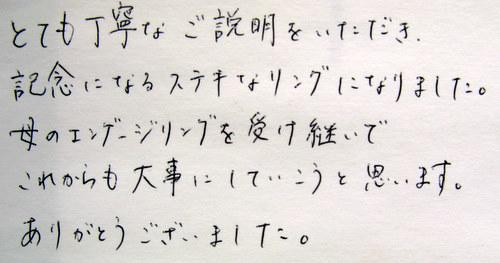 とても丁寧なご説明をいただき、
記念になるステキなリングになりました。
母のエンゲージリングを受け継いで
これからも大事にしていこうと思います。
ありがとうございました。